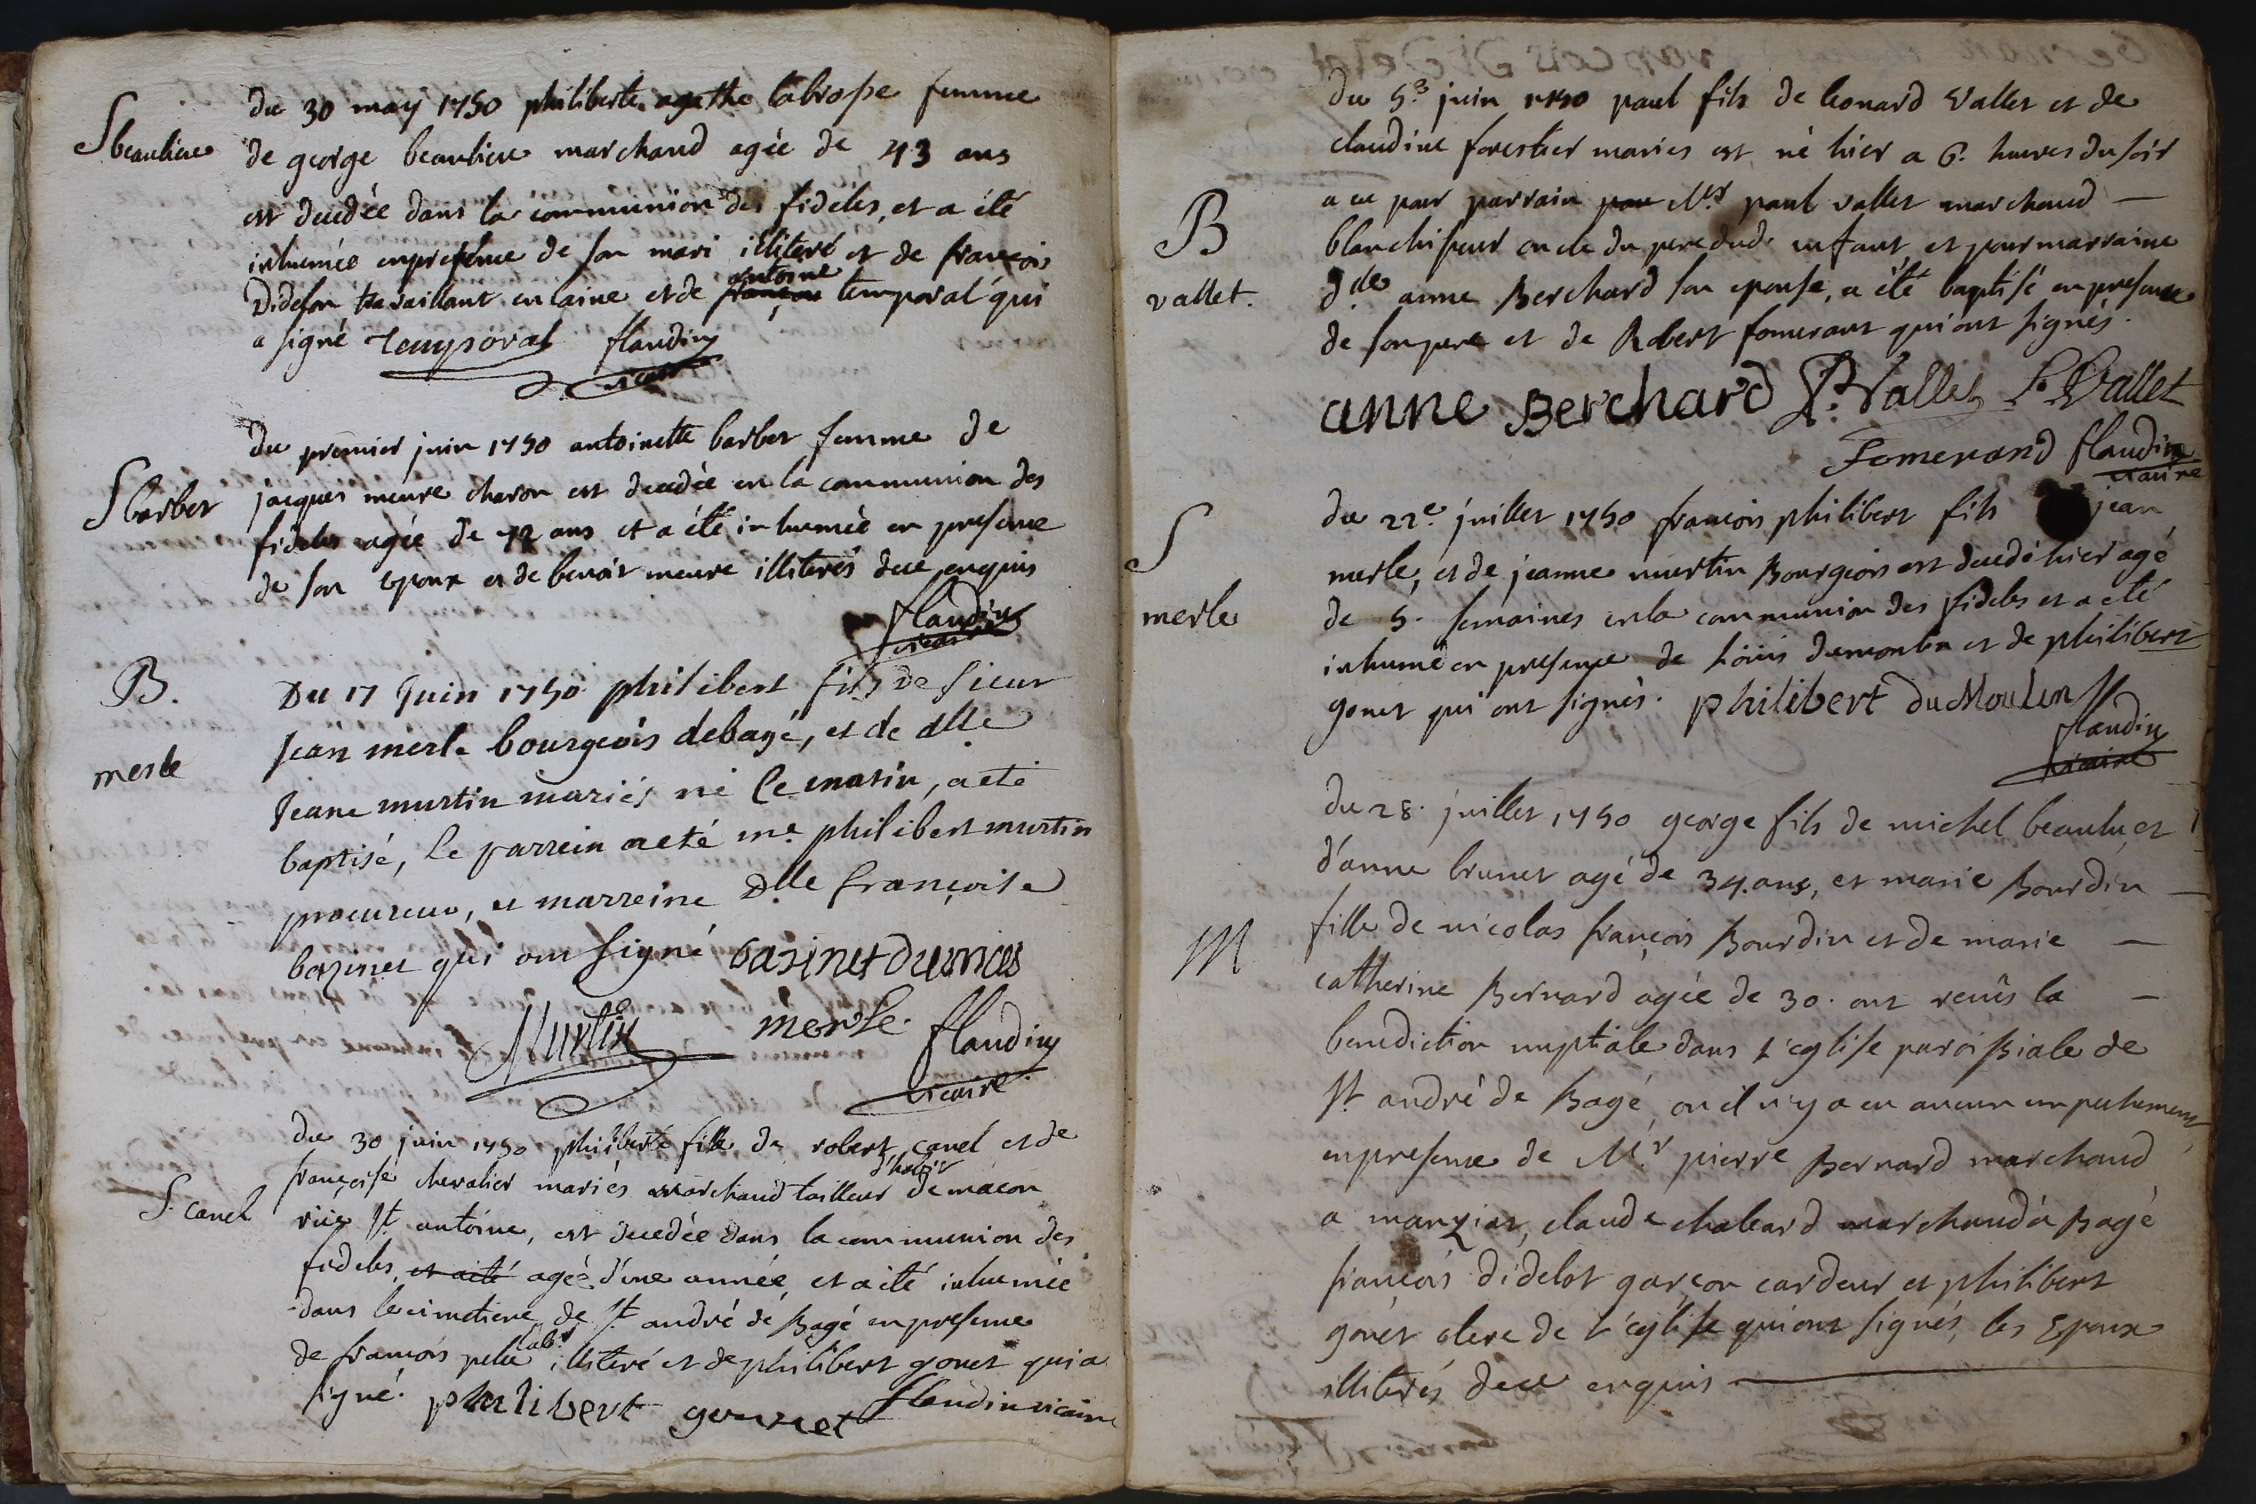 S beaulieu
du 30 may 1750 philiberte agathe labrosse femme
de george beaulieu marchand agée de 43 ans
est decedée dans la communion des fideles, et a été
inhumée en presence de son mari illiteré et de françois
Didelon travaillant en laine et de françois antoine temporal qui
a signé Temporal flandin
vicaire
S barbet
du premier juin 1750 antoinette barbet femme de
jacques meure charon est decedée en la communion des
fideles agée de 72 ans et a été inhumée en presence
de son epoux et de benoit meure illiterés de ce enquis
flandin
vicaire
B.
merle
Du 17 Juin 1750 philibert fils de sieur
Jean merle bourgeois de bagé, et de dlle
Jeane murtin mariés né le matin, a eté
baptisé, le parrein a eté me. philibert murtin
procureur, et marreine Dlle françoise
bazinet qui ont signé
Murtin merle. flandin
vicaire
S. canel
du 30 juin 1750 philiberte fille de robert canel et de
françoise chevalier mariés marchand tailleur d'habit de macon
ruë St antoine, est decedée dans la communion des
fideles, et a été agée d'une année, et a été inhumée
dans le cimetiere de St andré de Bagé en presence
de francois labr illiteré et de philibert gonet qui a
signé. philibert gonnet flandin vicaire
B
vallet.
du 5e juin 1750 paul fils de leonard Vallet et de
claudine forestier mariés est né hier a 6. heures du soir
a eu pour parrain pour Mr paul vallet marchand —
blanchisseur oncle du pere dud. enfant, et pour marraine
dlle anne Berchard son epouse, a été baptisé en presence
de son pere et de Robert fomerant qui ont signés.
anne Berchard P. Vallet L Vallet
Fomerand flandin
vicaire
S
merle
du 22e. juillet 1750 françois philibert fils jean
merle, et de jeanne murtin Bourgeois est decedé hier agé
de 5. semaines en la communion des fideles et a été
inhumé en presence de Loüis dumoulin et de philibert
gonet qui ont signés. philibert duMoulin
flandin
vicaire
M
du 28. juillet 1750 george fils de michel beaulieu, et
d'anne brunet agé de 34. ans, et marie Bourdin —
fille de nicolas françois Bourdin et de marie —
catherine Bernard agée de 30. ont reçus la —
benediction nuptiale dans l'eglise paroissiale de
St andré de Bagé, ou il n'y a eu aucun empechement,
en presence de Mr pierre Bernard marchand
a manziat, claude chaleard marchand à Bagé
françois didelot garçon cardeur et philibert
gonet clerc de l'église qui ont signés, les Epoux
illiterés de ce enquis —